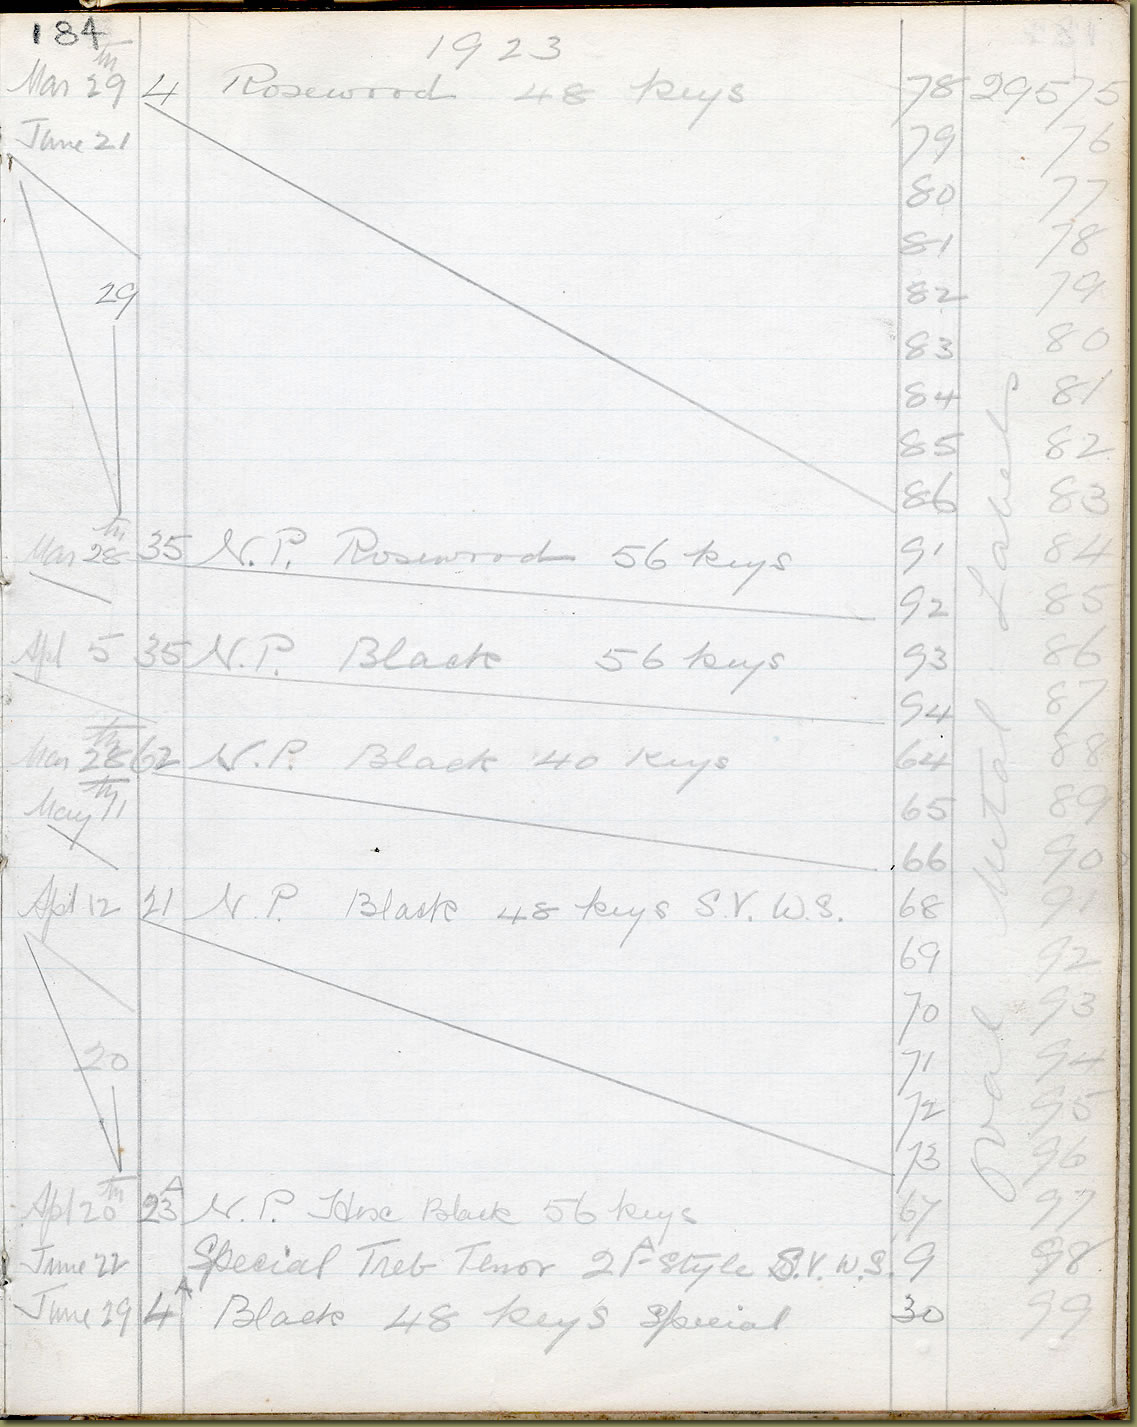 184
1923
Mar 29th 4 Rosewood 48 keys 78 29575
June 21 79 76
80 77
81 78
29 82 79
83 80
84 81
85 82
86 83
Mar 28th 35 N.P. Rosewood 56 keys 91 84
92 85
Apl 5 35 N.P. Black 56 keys 93 86
94 87
Mar 28th 62 N.P. Black 40 keys 64 88
May 11th 65 89
66 90
Apl 12 21 N.P. Black 48 keys S.V. W.S. 68 91
69 92
70 93
20 71 94
72 95
73 96
Apl 20th 23A N.P. Hex Black 56 keys 67 97
June 22 Special Treb Tenor 21A Style S.V. W.S. 9 98
June 29 4A Black 48 keys Special 30 99
Oval Metal Labels